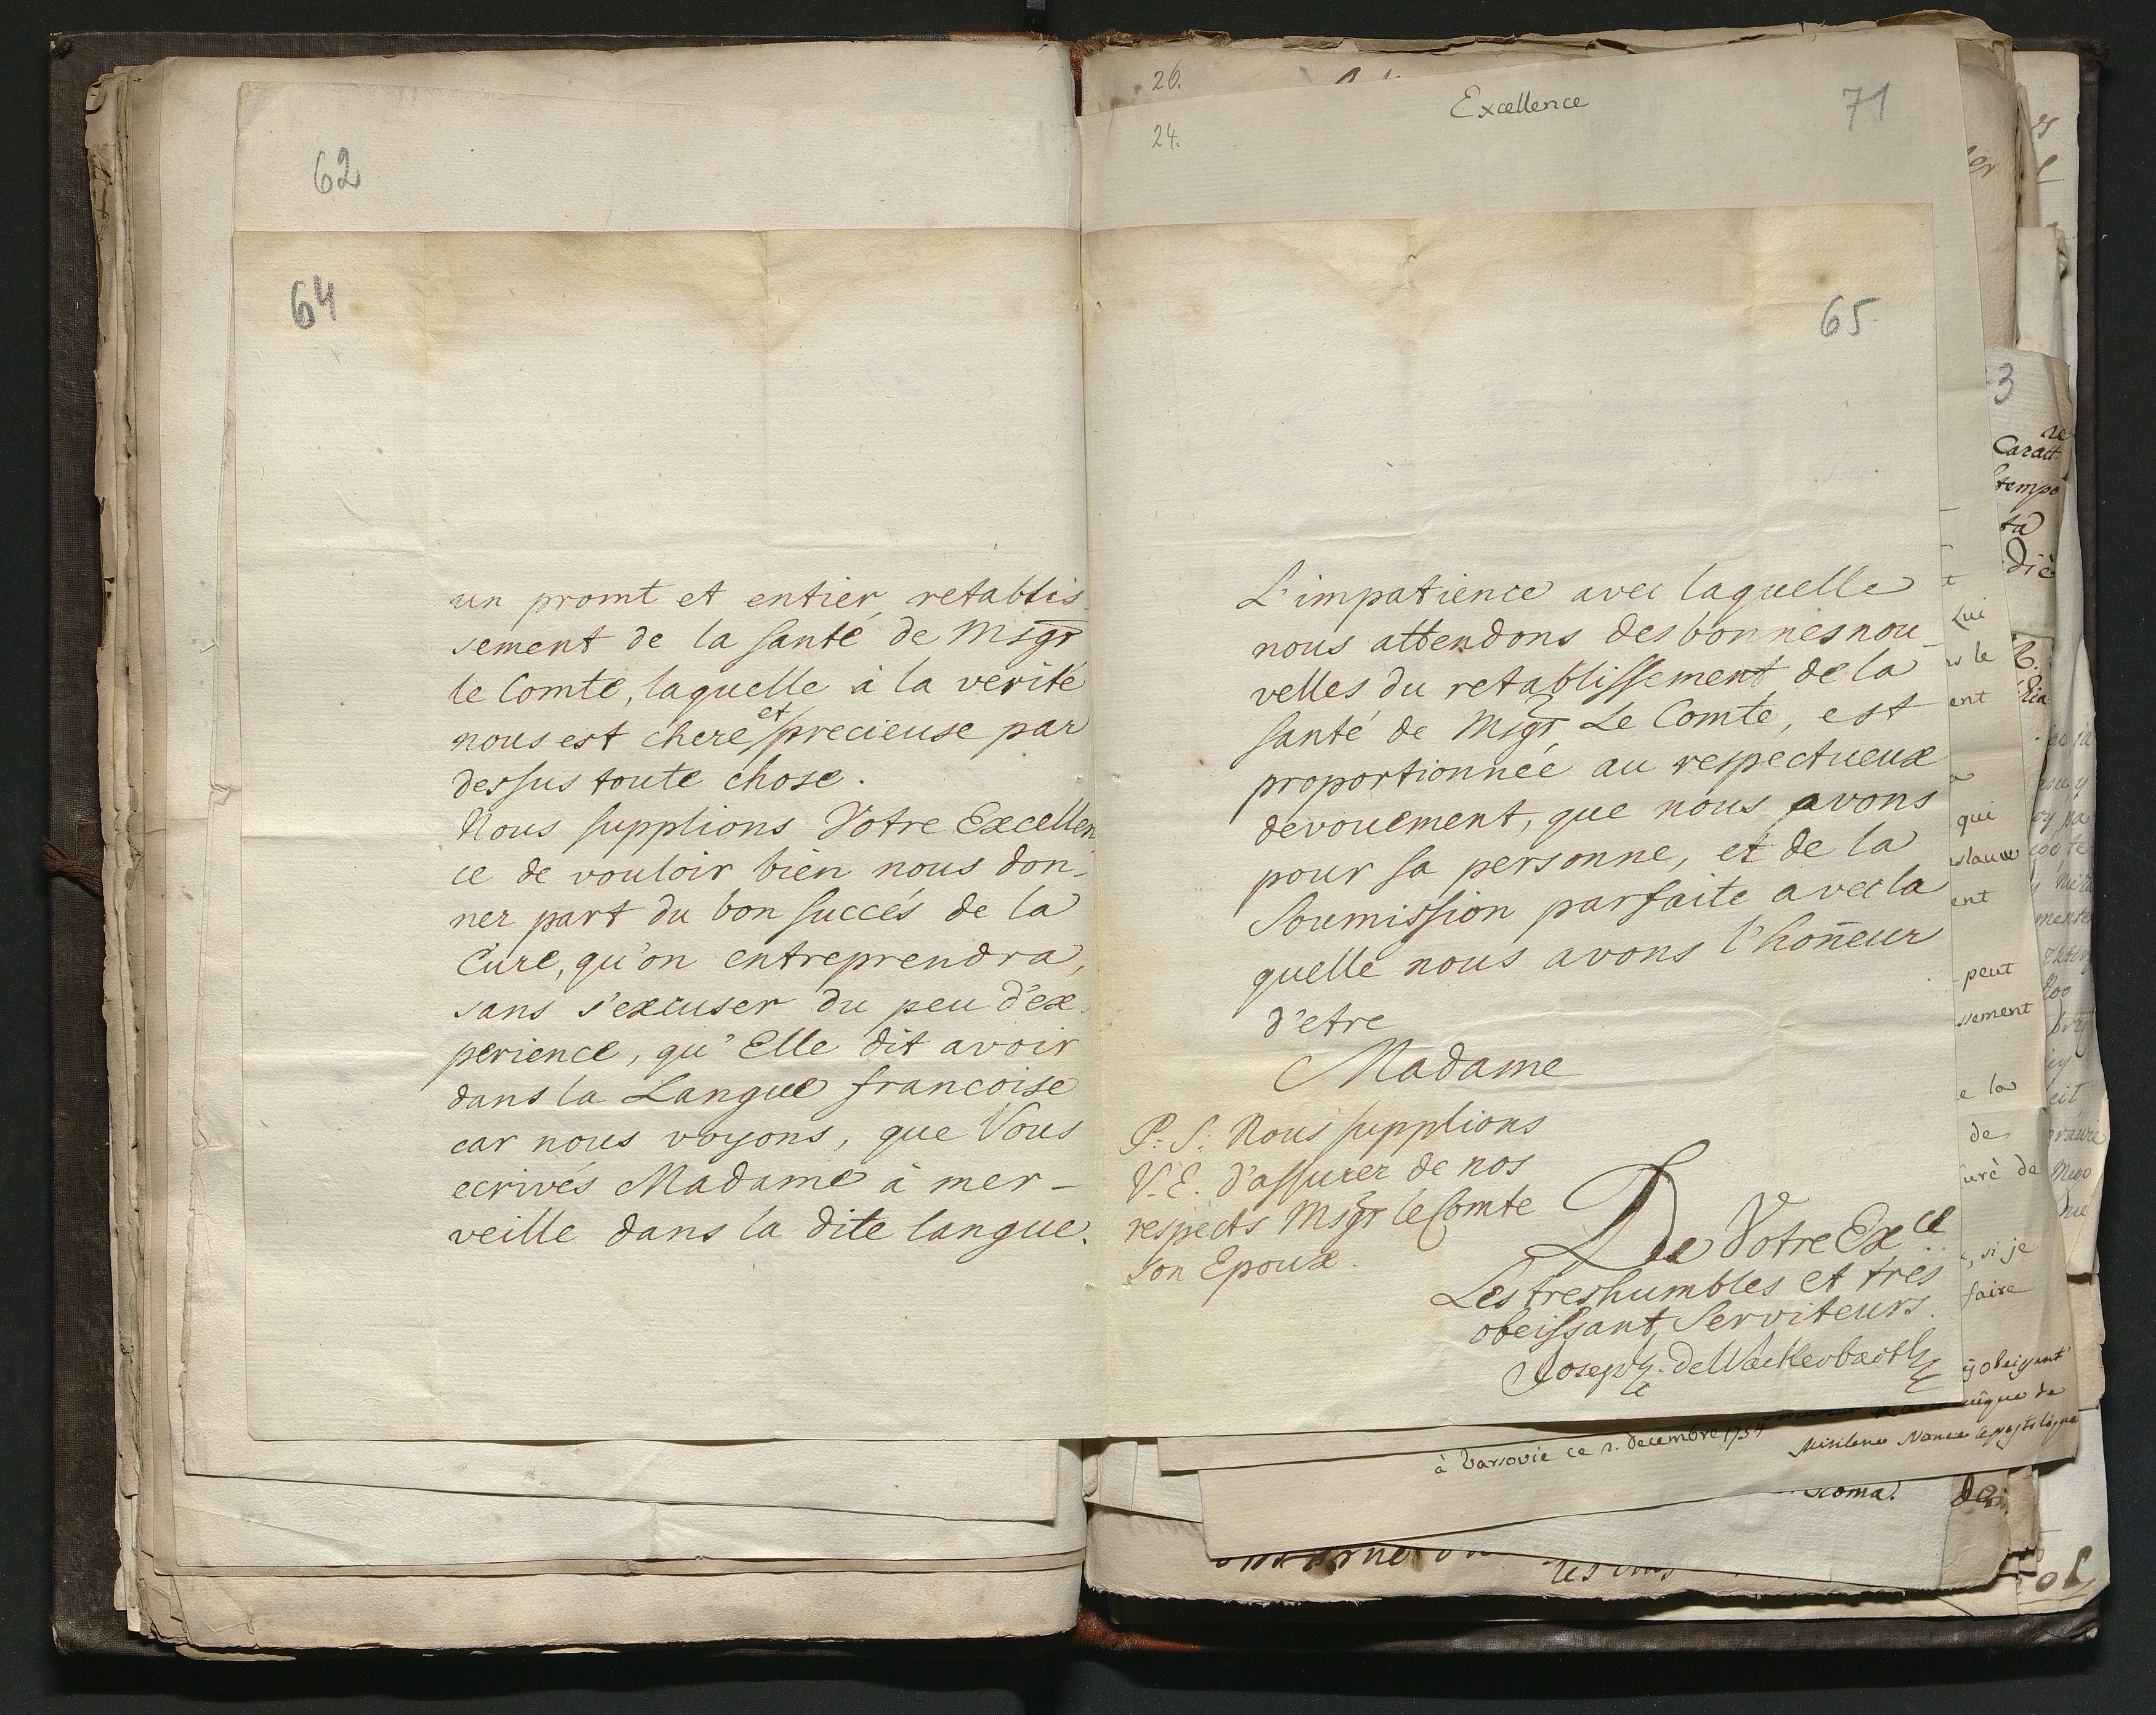 62
64
un promt et entier retablis
sement de la santé de Msgr
le Comte, laquelle à la verité
nous est chere et precieuse par
dessus toute chose.
Nous supplions Votre Excellen
ce de vouloir bien nous don-
ner part du bon succés de la
Cure, qu'on entreprendra,
sans s'excuser du peu d'ex
perience, qu'Elle dit avoir
dans la Langue francoise
car nous voyons, que Vous
ecrivés Madame à mer-
veille dans la dite langue.
26.
24.
Excellence
71
65
L'impatience avec laquelle
nous attendons des bonnes nou-
velles du retablissement de la
santé de Msgr Le Comte, est
proportionnée au respectueux
devouement, que nous avons
pour sa personne, et de la
Soumission parfaite avec la
quelle nous avons l'hon̄eur
d'etre
Madame
P: S: Nous supplions
V. E. d'assurer de nos
respects Msgr le Comte
son Epoux.
De Votre Exce
Les tres humbles et tres
obeissant Serviteurs.
Joseph de Wackerbarth
à Varsovie ce 2. decembre 1754
3
Caract
tempo
ta
diè
Lui
ns le
ent
qui
ent
peut
ssement
e la
de
uré de
, si je
faire
Roma.